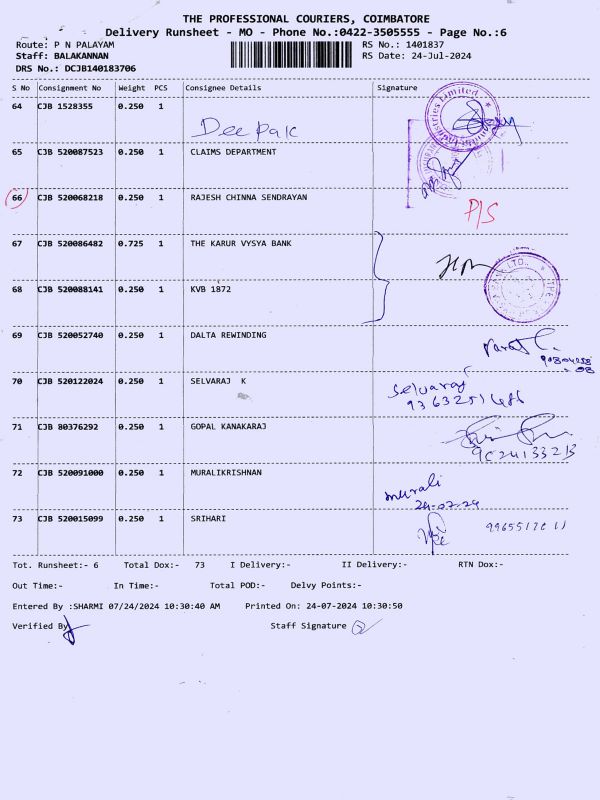 THE PROFESSIONAL COURIERS, COIMBATORE
Delivery Runsheet - MO - Phone No.:0422-3505555 - Page No.:6
Route: P N PALAYAM RS No.: 1401837
Staff: BALAKANNAN RS Date: 24-Jul-2024
DRS No.: DCJB140183706
S No Consignment No Weight PCS Consignee Details Signature
64 CJB 1528355 0.250 1
Deepak
65 CJB 520087523 0.250 1 CLAIMS DEPARTMENT
66 CJB 520068218 0.250 1 RAJESH CHINNA SENDRAYAN
P/S
67 CJB 520086482 0.725 1 THE KARUR VYSYA BANK
68 CJB 520088141 0.250 1 KVB 1872
69 CJB 520052740 0.250 1 DALTA REWINDING
70 CJB 520122024 0.250 1 SELVARAJ K
Selvaraj
71 CJB 80376292 0.250 1 GOPAL KANAKARAJ
72 CJB 520091000 0.250 1 MURALIKRISHNAN
murali
24-07-24
73 CJB 520015099 0.250 1 SRIHARI
Tot. Runsheet:- 6 Total Dox:- 73 I Delivery:- II Delivery:- RTN Dox:-
Out Time:- In Time:- Total POD:- Delvy Points:-
Entered By :SHARMI 07/24/2024 10:30:40 AM Printed On: 24-07-2024 10:30:50
Verified By Staff Signature